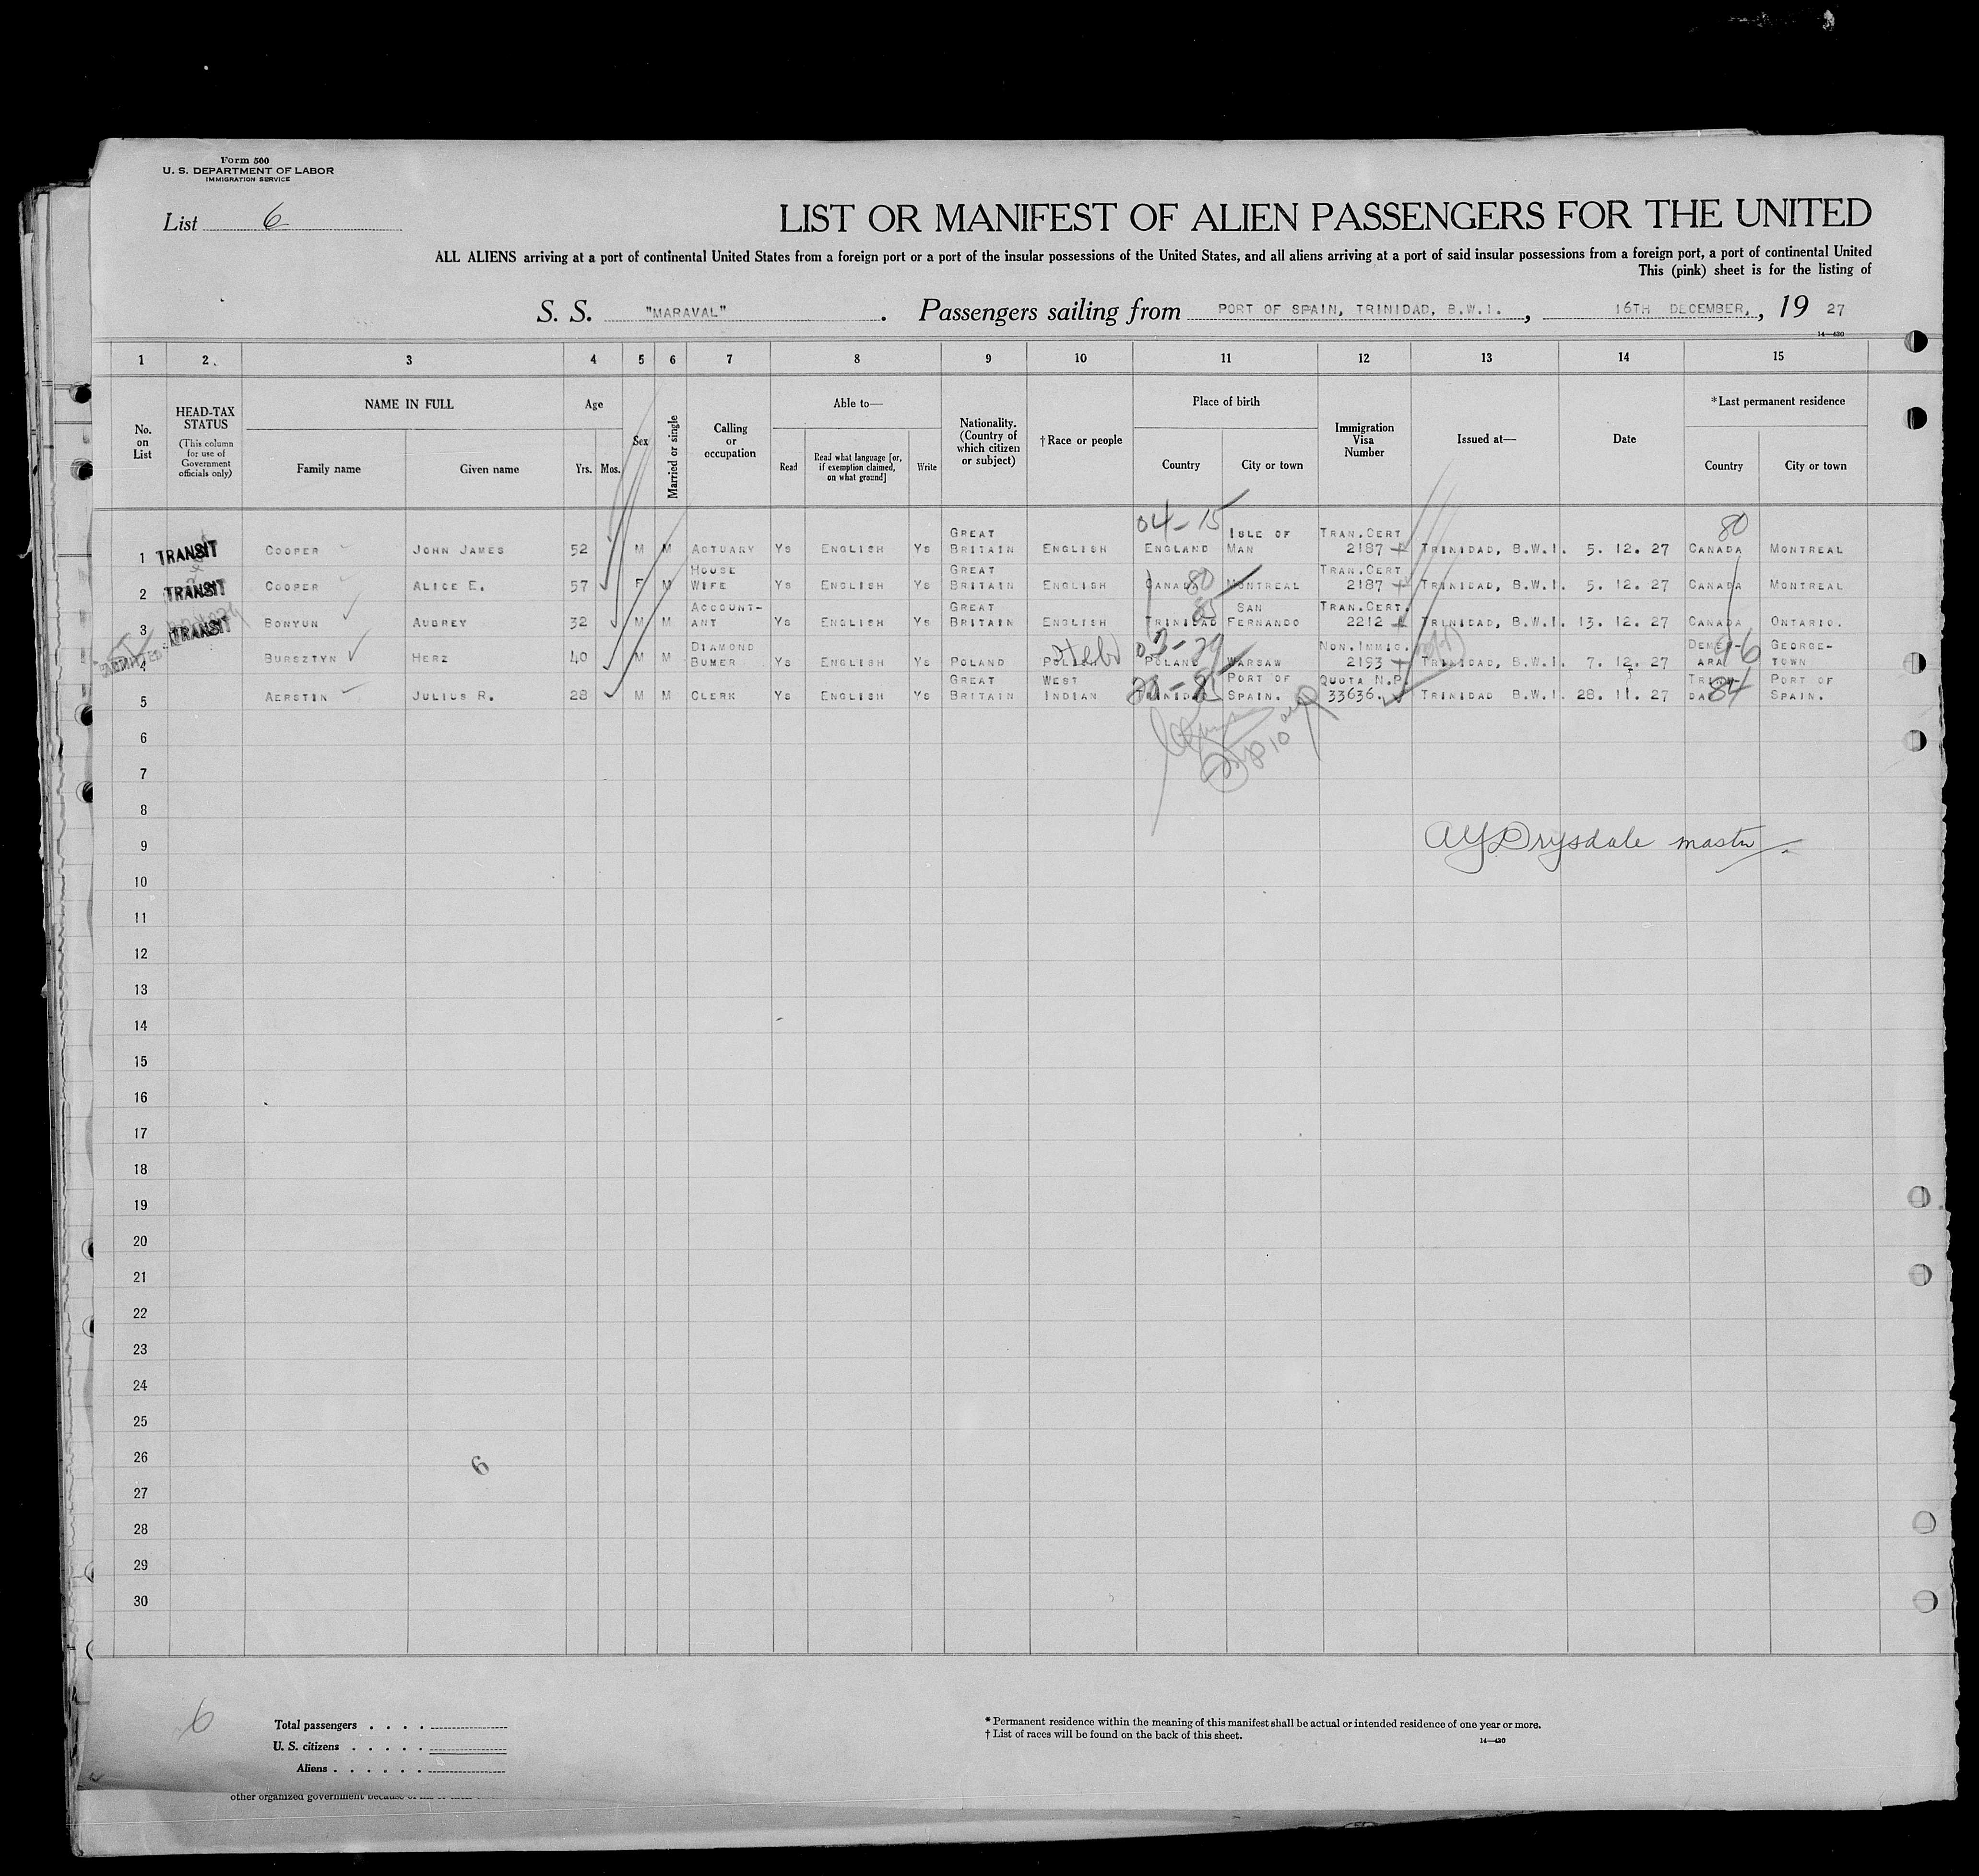 Form 500
U. S. DEPARTMENT OF LABOR
IMMIGRATION SERVICE
List 6
LIST OR MANIFEST OF ALIEN PASSENGERS FOR THE UNITED
ALL ALIENS arriving at a port of continental United States from a foreign port or a port of the insular possessions of the United States, and all aliens arriving at a port of said insular possessions from a foreign port, a port of continental United
This (pink) sheet is for the listing of
S. S. "MARAVAL". Passengers sailing from PORT OF SPAIN, TRINIDAD, B.W.I., 16TH DECEMBER, , 19 27
14—430
1 2 3 4 5 6 7 8 9 10 11 12 13 14 15
No. on List
HEAD-TAX STATUS
(This column for use of Government officials only)
NAME IN FULL
Family name
Given name
Age
Yrs.
Mos.
Sex
Married or single
Calling or occupation
Able to—
Read
Read what language [or, if exemption claimed, on what ground]
Write
Nationality. (Country of which citizen or subject)
†Race or people
Place of birth
Country
City or town
Immigration Visa Number
Issued at—
Date
*Last permanent residence
Country
City or town
04-15 80
1 TRANSIT COOPER JOHN JAMES 52 M M ACTUARY YS ENGLISH YS GREAT BRITAIN ENGLISH ENGLAND ISLE OF MAN TRAN.CERT 2187 TRINIDAD, B.W.I. 5. 12. 27 CANADA MONTREAL
2 TRANSIT COOPER ALICE E. 57 F M HOUSE WIFE YS ENGLISH YS GREAT BRITAIN ENGLISH CANADA 80 MONTREAL TRAN.CERT 2187 TRINIDAD, B.W.I. 5. 12. 27 CANADA MONTREAL
3 TRANSIT BONYUN AUBREY 32 M M ACCOUNT-ANT YS ENGLISH YS GREAT BRITAIN ENGLISH TRINIDAD 85 SAN FERNANDO TRAN.CERT. 2212 TRINIDAD, B.W.I. 13. 12. 27 CANADA ONTARIO.
4 BURSZTYN HERZ 40 M M DIAMOND BUMER YS ENGLISH YS POLAND Heb POLAND WARSAW NON.IMMIG. 2193 TRINIDAD, B.W.I. 7. 12. 27 DEMER-ARA 96 GEORGE-TOWN
5 AERSTIN JULIUS R. 28 M M CLERK YS ENGLISH YS GREAT BRITAIN WEST INDIAN TRINIDAD PORT OF SPAIN. QUOTA N.P. 33636. TRINIDAD B.W.I. 28. 11. 27 TRINI-DAD 84 PORT OF SPAIN.
6
7
8
9
AYDrysdale master
10
11
12
13
14
15
16
17
18
19
20
21
22
23
24
25
26
6
27
28
29
30
6
Total passengers . . . .
U. S. citizens . . . . .
Aliens . . . . . .
* Permanent residence within the meaning of this manifest shall be actual or intended residence of one year or more.
† List of races will be found on the back of this sheet.
14—430
other organized government because of